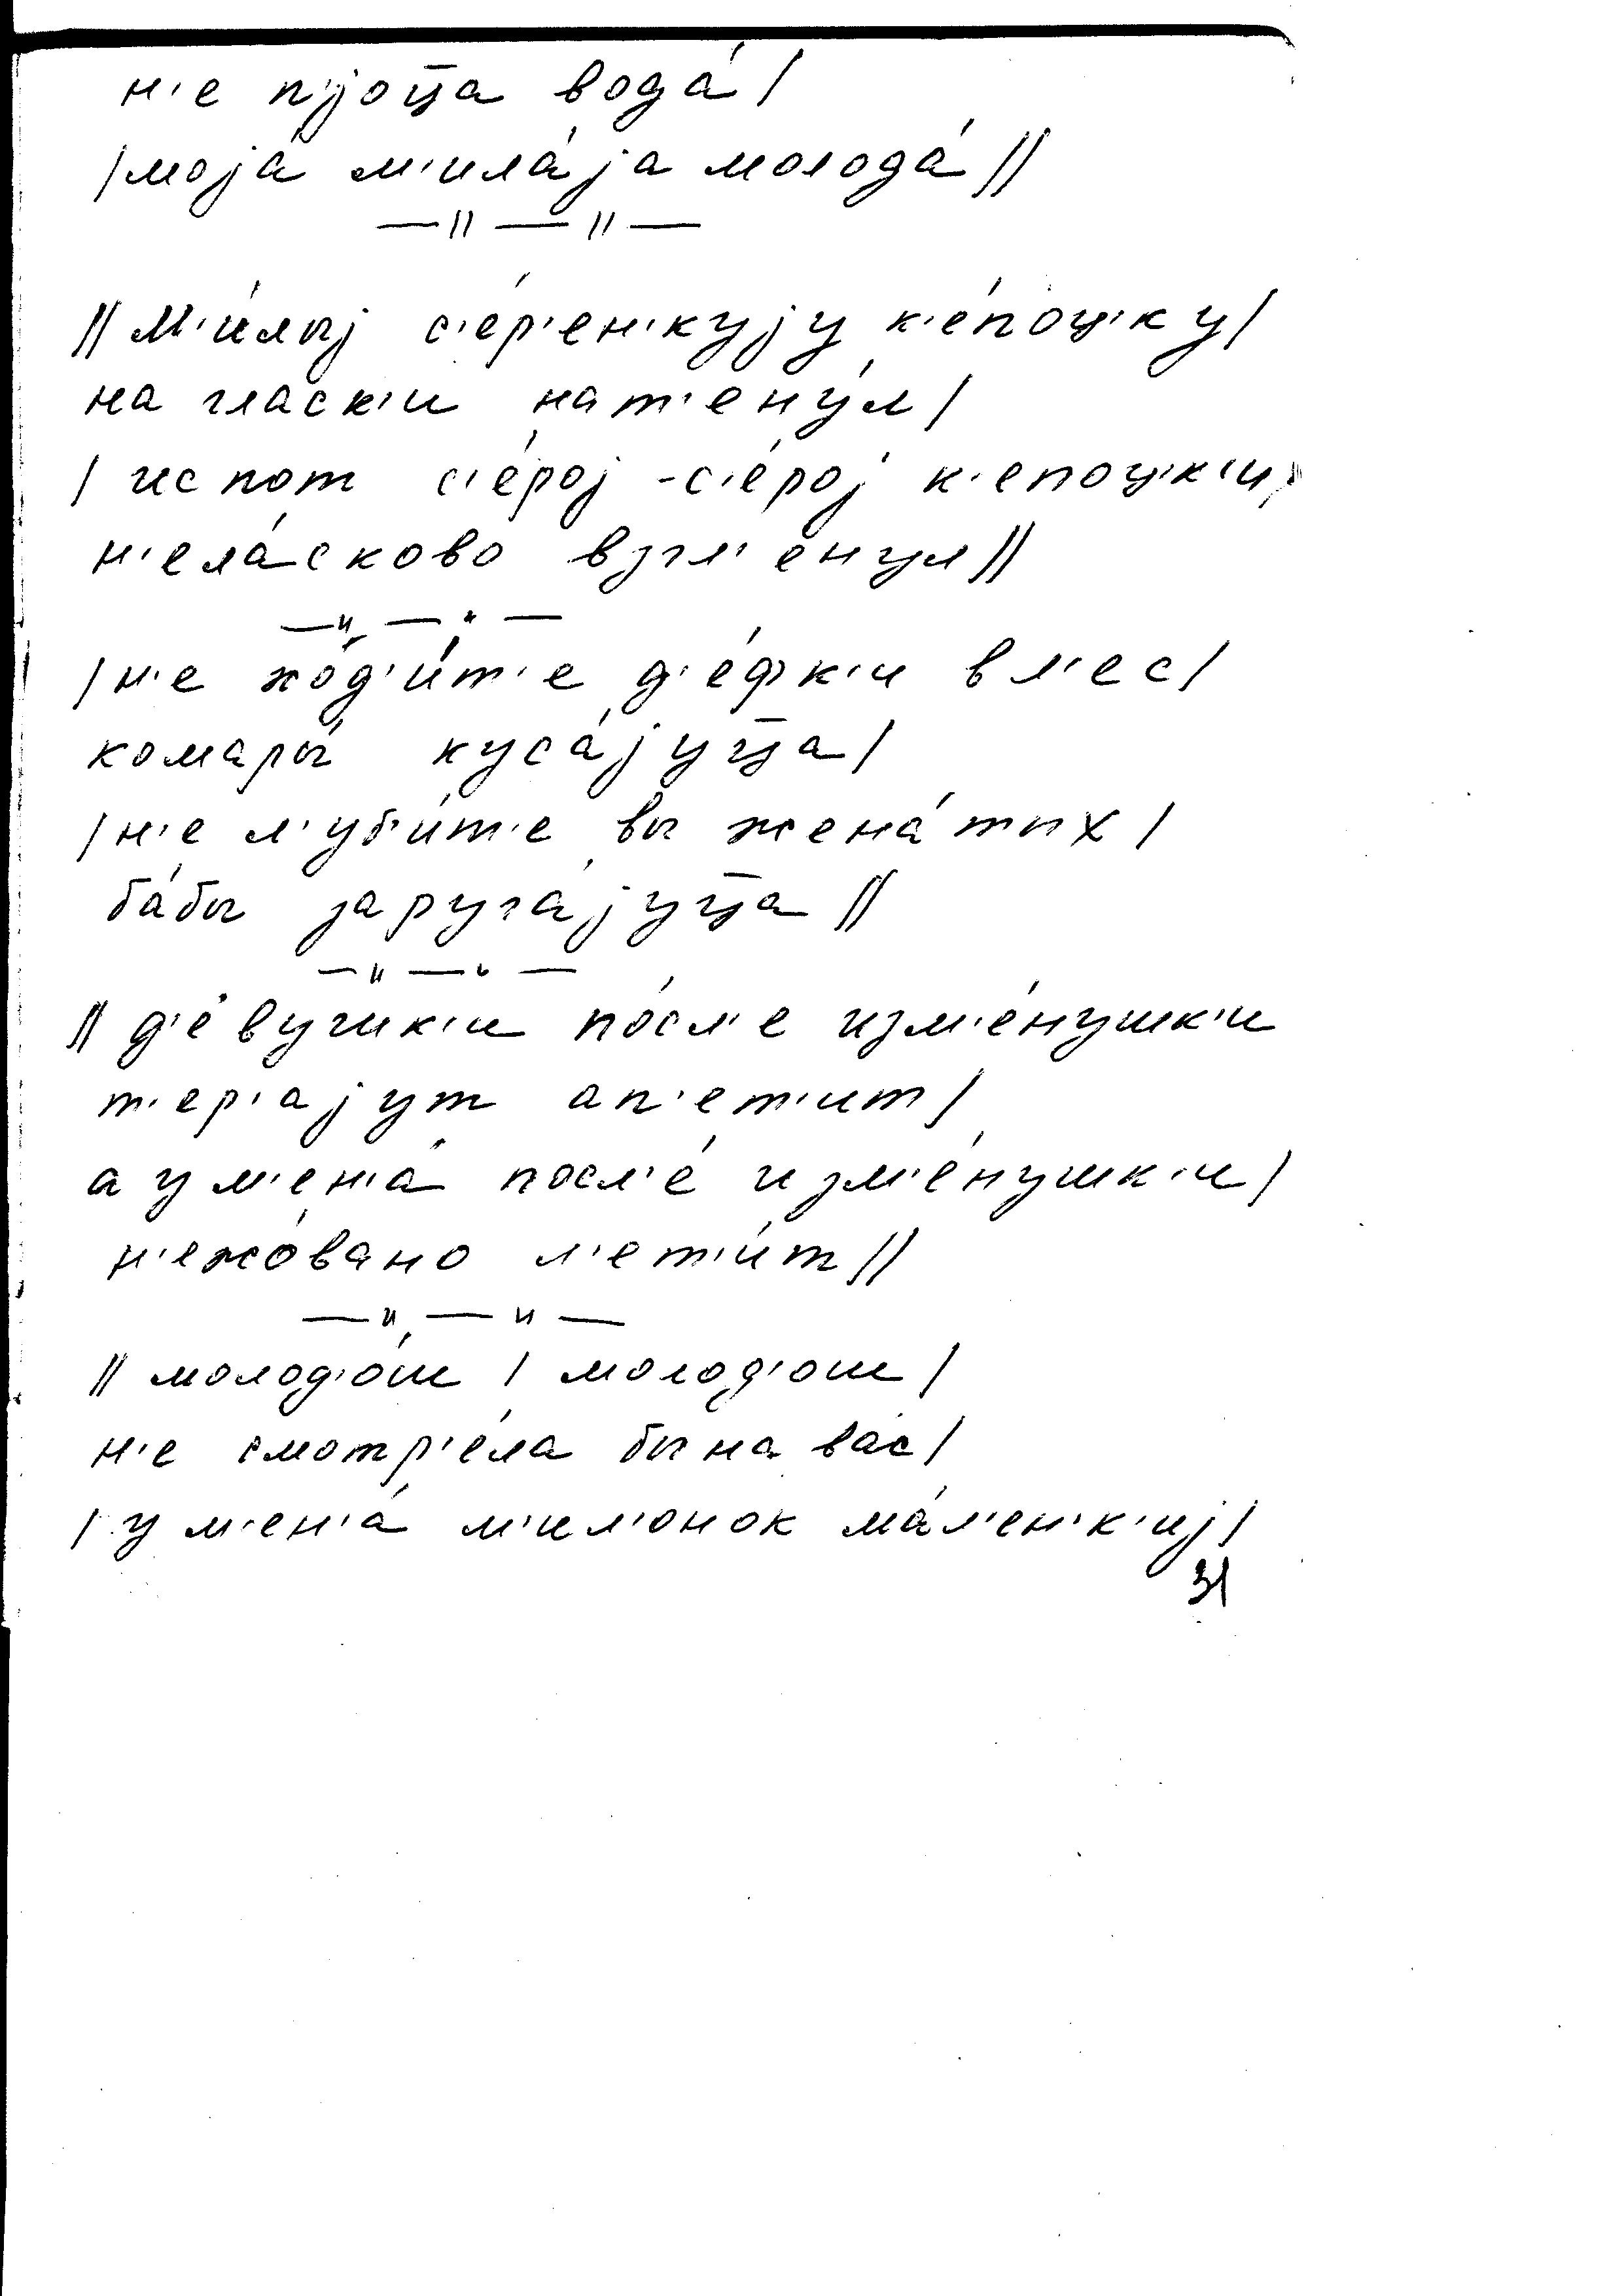 н'е п'јоц̄а вода́ /
/ моја́ м'ила́ја молода́ //
— // — // —
// М'и́лыј с'е́р'ен'кују к'е́поц'ку /
на гласк'и нат'ену́л /
/ ис пот с'е́рој - с'е́рој к'епоц'к'и /
н'ела́сково взгл'е́нул //
— " — " —
/ н'е ход'и́т'е д'е́фк'и в л'ес /
комары́ куса́јуц̄а /
/ н'е л'уб'и́т'е вы жена́тых /
ба́бы заруга́јуц̄а //
— " — " —
// д'е́вушк'и по́сл'е изм'е́нушк'и
т'ер'ајут ап'ет'ит /
а у м'ен'а́ посл'е́ изм'е́нушк'и /
н'ежо́вано л'ет'и́т //
— " — " —
// молод'о́ш / молод'ош /
н'е смотр'е́ла бы на ва́с /
/ у м'ен'а́ м'ил'онок ма́л'ен'к'иј /
31